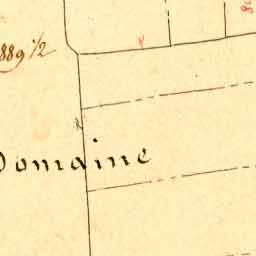 889 1/2
Domaine